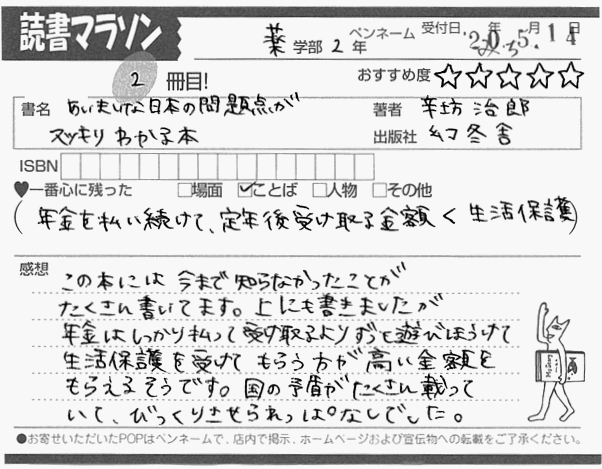 読書マラソン
薬 学部 2 年
ペンネーム みっち
受付日 '20 年 5 月 14 日
2 冊目!
おすすめ度 ☆☆☆☆☆
書名 あいまいな日本の問題点が
スッキリわかる本
著者 辛坊治郎
出版社 幻冬舎
ISBN
♥一番心に残った □場面 ☑ことば □人物 □その他
(年金を払い続けて、定年後受け取る金額 < 生活保護)
感想
この本には今まで知らなかったことが
たくさん書いてます。上にも書きましたが
年金はしっかり払って受け取るよりずっと遊びほうけて
生活保護を受けてもらう方が高い金額を
もらえるそうです。国の矛盾がたくさん載って
いて、びっくりさせられっぱなしでした。
●お寄せいただいたPOPはペンネームで、店内で掲示、ホームページおよび宣伝物への転載をご了承ください。